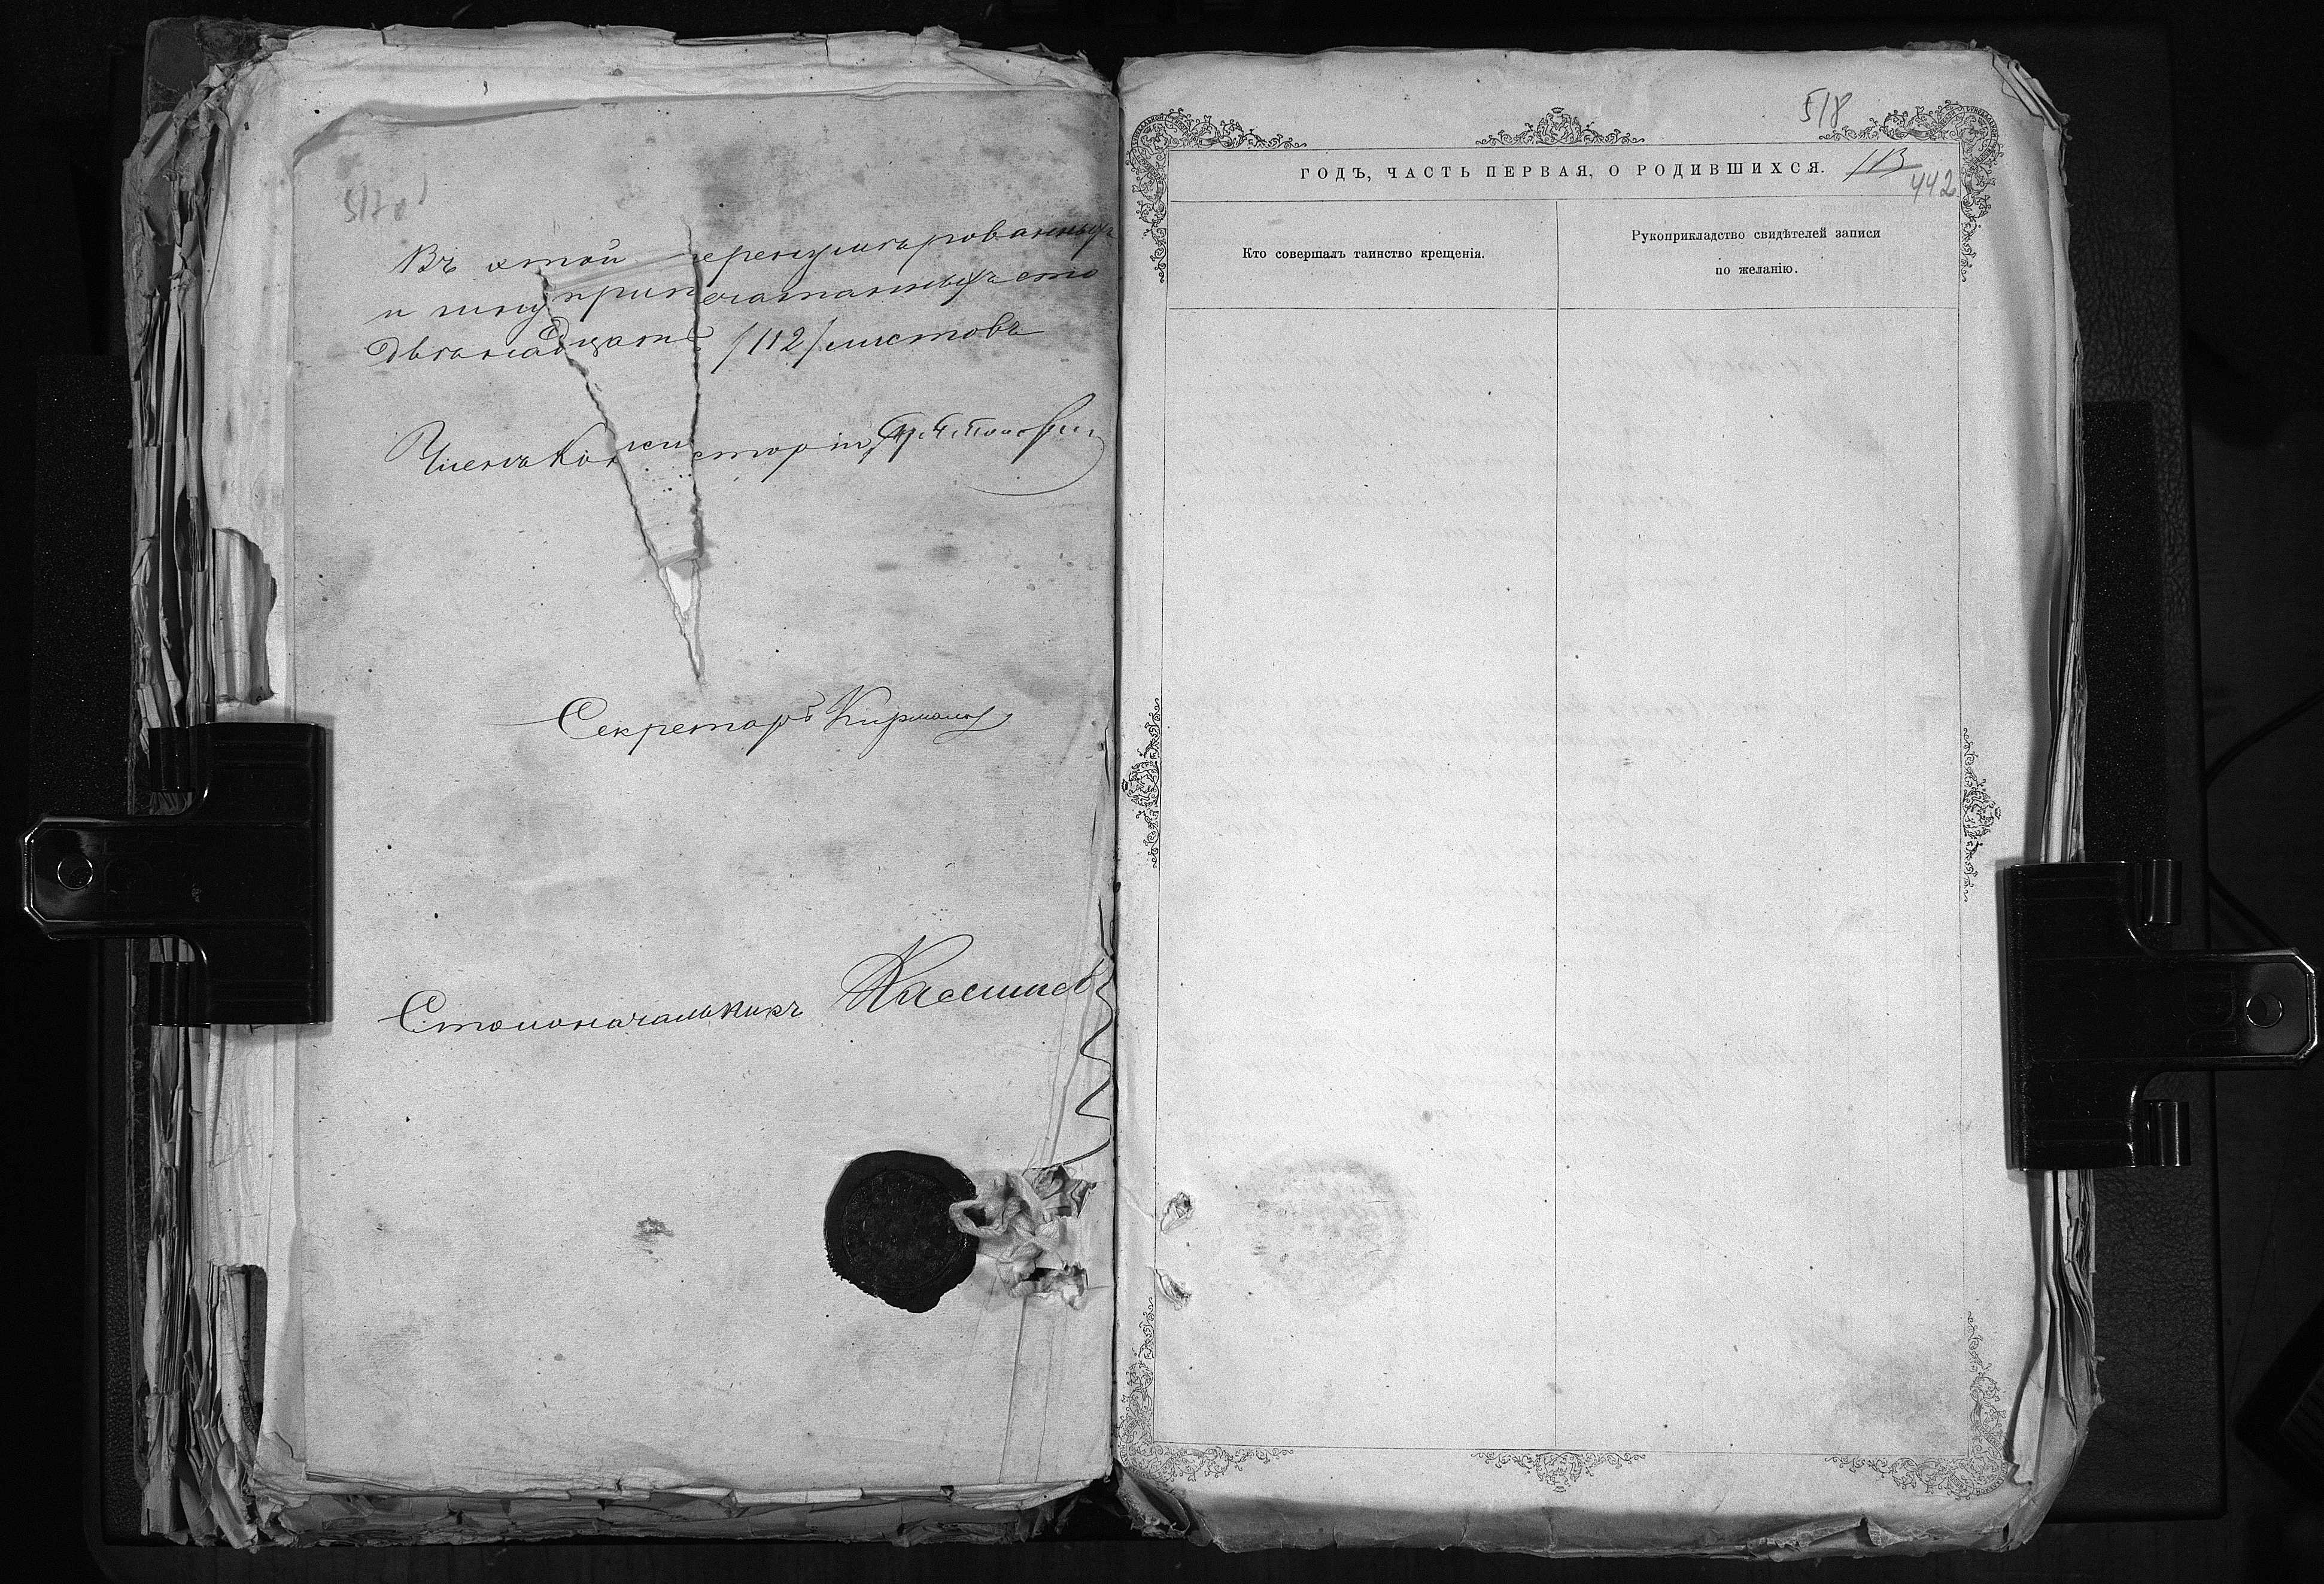 Въ этой перенумерованныхъ
и шнуроприпечатанныхъ сто
двѣнадцать /112/ листовъ
Членъ Консисторіи
Секретарь
Столоначальникъ
518
ГОДЪ, ЧАСТЬ ПЕРВАЯ, О РОДИВШИХСЯ. 113
442
Кто совершалъ таинство крещенія.
Рукоприкладство свидѣтелей записи
по желанію.